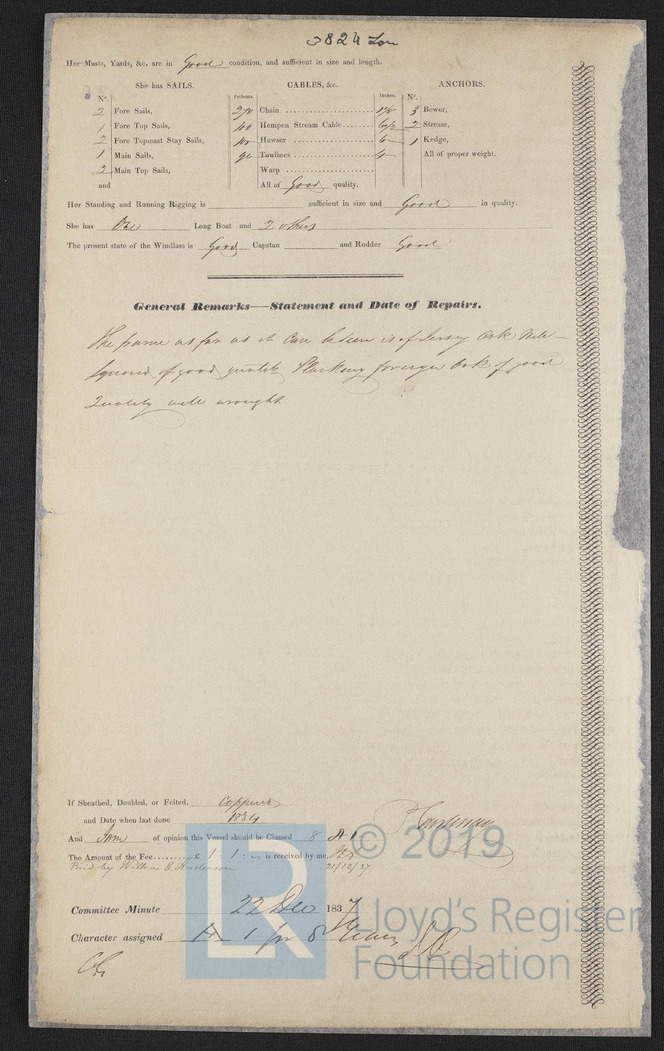 3824 Lon
Her Masts, Yards, &c. are in Good condition, and sufficient in size and length.
She has SAILS. CABLES, &c. ANCHORS.
No. Fathoms. Inches. No.
2 Fore Sails, 270 Chain 3 Bower,
1 Fore Top Sails, Hempen Stream Cable 2 Stream,
2 Fore Topmast Stay Sails, Hawser 1 Kedge,
1 Main Sails, 90 Towlines All of proper weight.
2 Main Top Sails, Warp
and All of Good quality.
Her Standing and Running Rigging is sufficient in size and Good in quality.
She has One Long Boat and 2 others
The present state of the Windlass is Good Capstan and Rudder Good
General Remarks—Statement and Date of Repairs.
The frame as far as it can be seen is of Oak well
Squared of good quality Planking foreign Oak of good
Quality well wrought
If Sheathed, Doubled, or Felted, Coppered
and Date when last done
And I am of opinion this Vessel should be Classed 8 A 1
The Amount of the Fee........£ 1 1 : is received by me,
Paid by Anderson 21/12/37
Committee Minute 22 Dec 1837
Character assigned A 1 for 8 Years
© 2019
Lloyd's Register
Foundation
LR